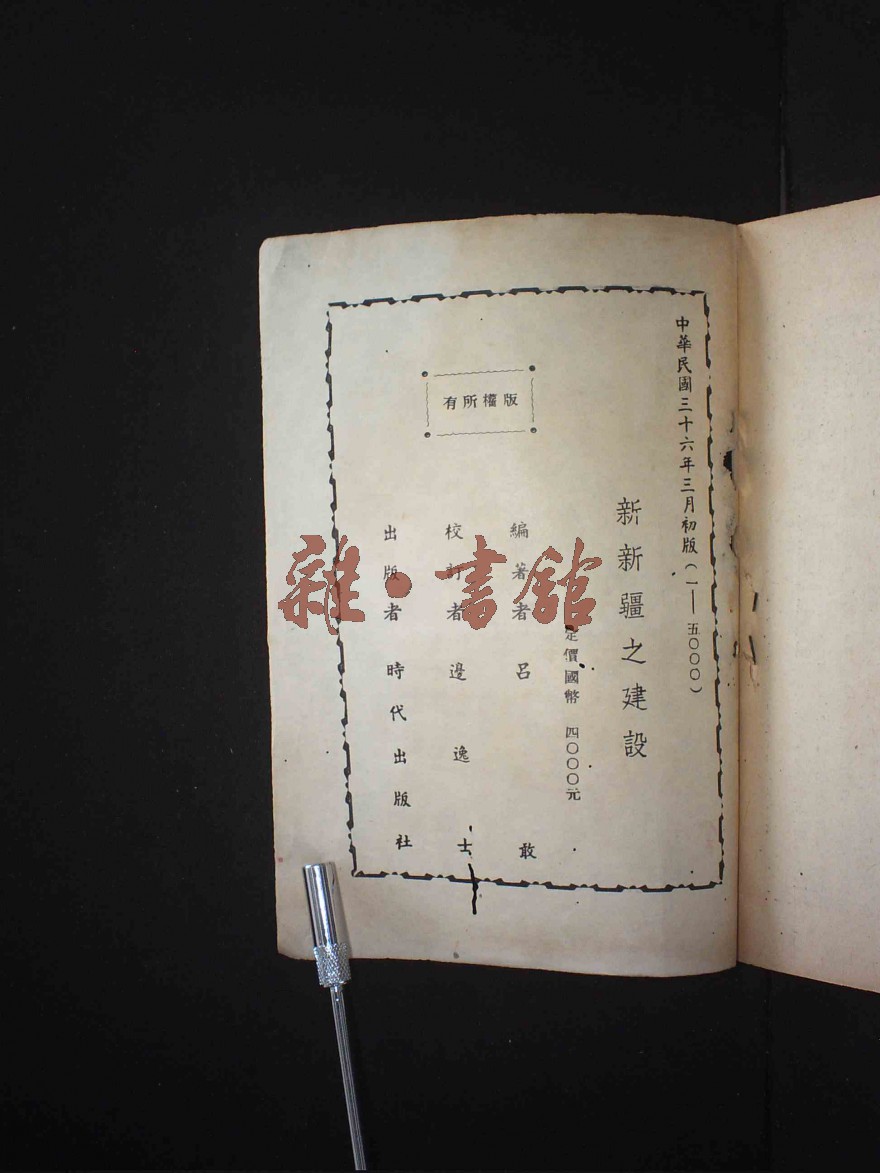 中華民國三十六年三月初版(一——五〇〇〇)
新新疆之建設
定價國幣 四〇〇〇元
編著者 呂敢
校訂者 邊逸士
出版者 時代出版社
版權所有
雜·書館